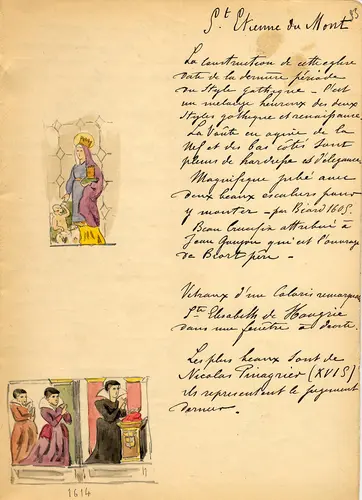 33
St Etienne du Mont
La construction de cette église
date de la dernière période
du style gothique - C'est
un mélange heureux des deux
styles gothique et renaissance.
La Voûte en ogive de la
nef et des bas côtés sont
pleins de hardiesse et d'élégance
Magnifique jubé avec
deux beaux escaliers pour
y monter - par Biard 1605.
Beau Crucifix attribué à
Jean Goujon qui est l'ouvrage
de Biart père -
Vitraux d'un Coloris remarqua
Ste Elisabeth de Hongrie
dans une fenêtre à droite.
Les plus beaux sont de
Nicolas Pinagrier (XVIS)
ils représentent le jugement
dernier.
1614